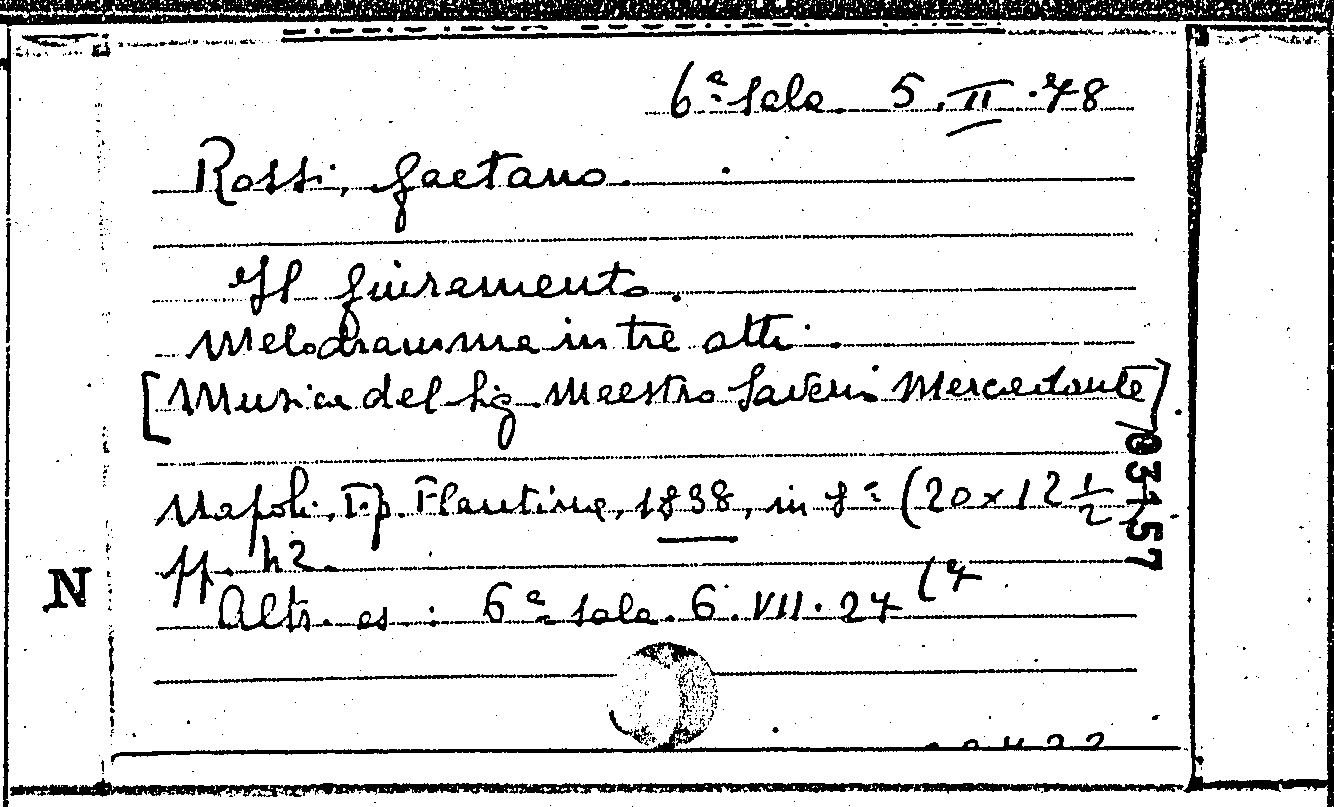 6ª Sala. 5. II. 48
Rossi, Gaetano.
Il giuramento.
Melodramma in tre atti.
[Musica del Sig. Maestro Saverio Mercadante]
Napoli, Tip. Flautina, 1838, in 8° (20 x 12 1/2
pp. 42.
Altr. es: 6ª Sala. 6. VII. 27 (4
N
03157